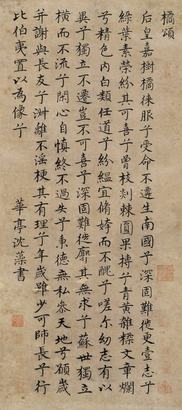 橘頌
后皇嘉樹橘徠服兮受命不遷生南國兮深固難徙更壹志兮
綠葉素榮紛其可喜兮曾枝剡棘圓果摶兮青黃雜糅文章爛
兮精色內白類任道兮紛緼宜脩姱而不醜兮嗟爾幼志有以
異兮獨立不遷豈不可喜兮深固難徙廓其無求兮蘇世獨立
橫而不流兮閉心自慎終不過失兮秉德無私參天地兮願歲
并謝與長友兮淑離不淫梗其有理兮年歲雖少可師長兮行
比伯夷置以為像兮
華亭沈藻書